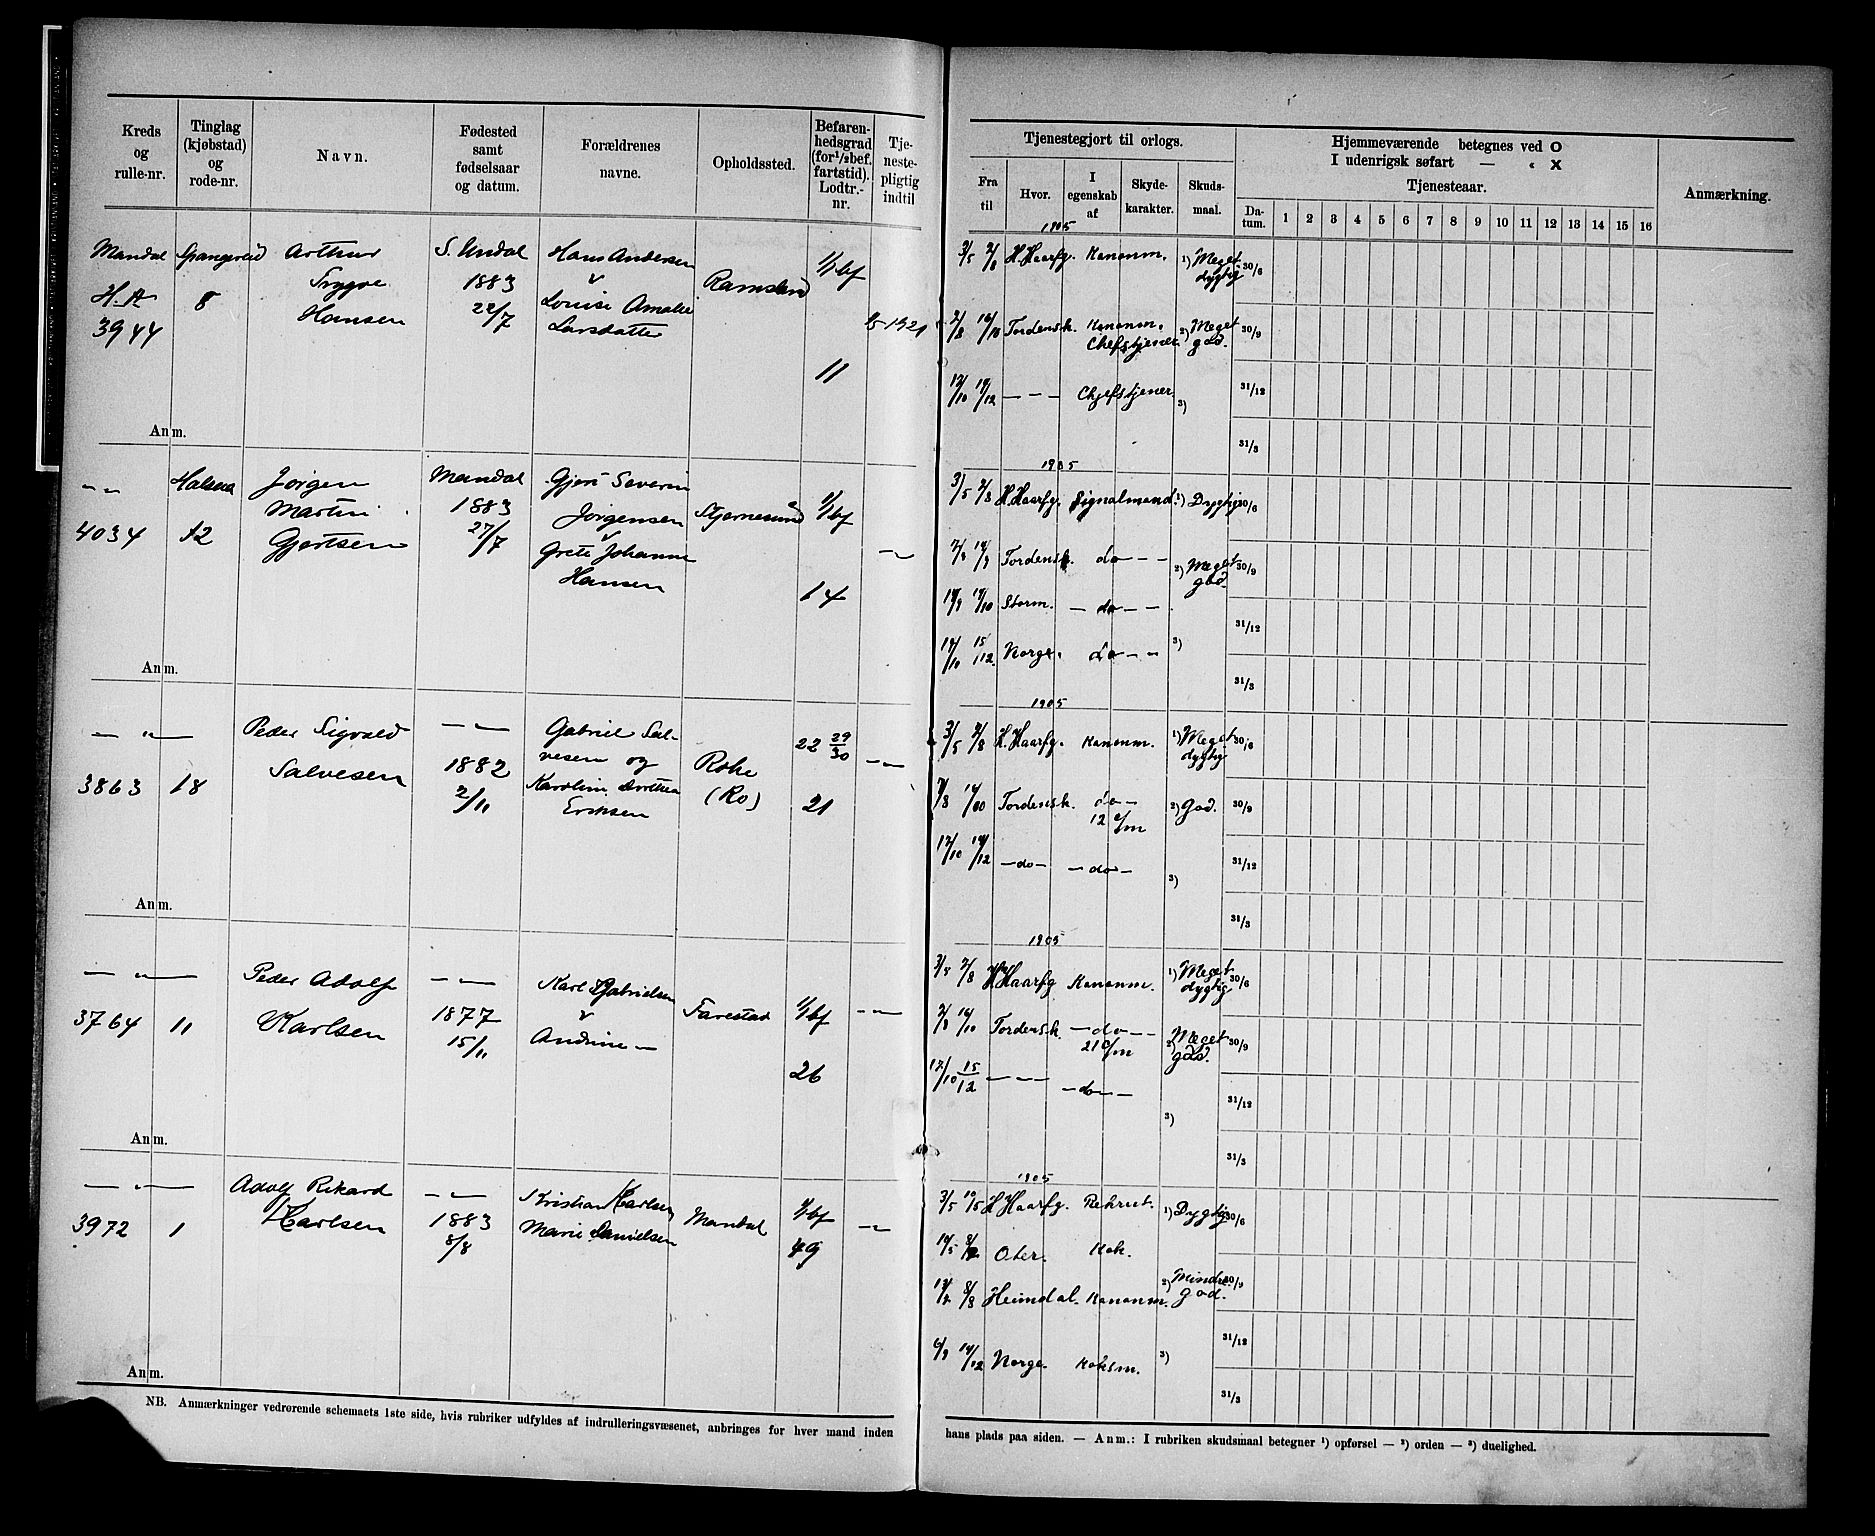 Kreds og rulle-nr.
Tinglag (kjøbstad) og rode-nr.
Navn.
Fødested samt fødselsaar og datum.
Forældrenes navne.
Opholdssted.
Befaren-hedsgrad (for 1/2 bef. fartstid). Lodtr.-nr.
Tje-neste-pligtig indtil
Tjenestegjort til orlogs.
Fra til
Hvor.
I egenskab af
Skyde-karakter.
Skuds-maal.
Hjemmeværende betegnes ved O
I udenrigsk søfart — « X
Tjenesteaar.
Da-tum. 1 2 3 4 5 6 7 8 9 10 11 12 13 14 15 16
Anmærkning.
Mandal Spangereid Arthur S. Undal Hans Andersen 1/1 bf
H. A 8 Trygve 1883 v Ramsland
3944 Hansen 22/7 Louise Amalie
Larsdatter
11
1905
3/5 2/8 H. Haarfg. Kanonm. 1) Meget dygtig 30/6
2/8 Tordensk. Kanonm. Chefstjener. 2) Meget god. 30/9
12/10 19/12 — — — Chefstjener 3) 31/12
31/3
Anm.
— „ — Halsaa Jørgen Mandal Gjert Severin 1/1 bf
4034 12 Martin 1883 Jørgensen Stjernesund
Gjertsen 27/7 v — „ —
Grete Johanne
Hansen 14
1905
3/5 2/8 H. Haarfg. Signalmand. 1) Dygtig 30/6
2/8 14/9 Tordensk. do — — 2) Meget god. 30/9
14/9 Storm. — do — —
31/12
15/12 Norge. do — — 3)
31/3
Anm.
— „ — Peder Sigvald — „ — Gabriel Sal-
3863 18 Salvesen 1882 vesen og Rohe (Ro) 22 29/30 — „ —
2/11 Karoline Dorthea
Eriksen 21
1905
3/5 2/8 H. Haarfg. Kanonm. 1) Meget dygtig 30/6
2/8 Tordensk. do — 12 c/m 2) God. 30/9
12/10 19/12 — do — — do — 3) 31/12
31/3
Anm.
— „ — Peder Adolf — „ — Karl Gabrielsen
3764 11 Karlsen 1877 v Farestad 1/1 bf — „ —
15/11 Andrine —
26
1905
3/5 2/8 H. Haarfg Kanonm. 1) Meget dygtig 30/6
2/8 Tordensk. — do — — 21 c/m 2) Meget god. 30/9
12/10 15/12 — — — — do — — 3) 31/12
31/3
Anm.
— „ — Adolf Rikard — „ — Kristian Karlsen 1/1 bf
3972 1 Karlsen 1883 Marie Danielsen Mandal — „ —
8/8 49
1905
3/5 H Haarfg. Rekrut. 1) Dygtig 30/6
Oter. Kok.
8/8 Heimdal. Kanonm. 2) Mindre god. 30/9
6/9 14/12 Norge. Koksm. 3) 31/12
31/3
Anm.
NB. Anmærkninger vedrørende schemaets 1ste side, hvis rubriker udfyldes af indrulleringsvæsenet, anbringes for hver mand inden
hans plads paa siden. — Anm.: I rubriken skudsmaal betegner ¹) opførsel — ²) orden — ³) duelighed.